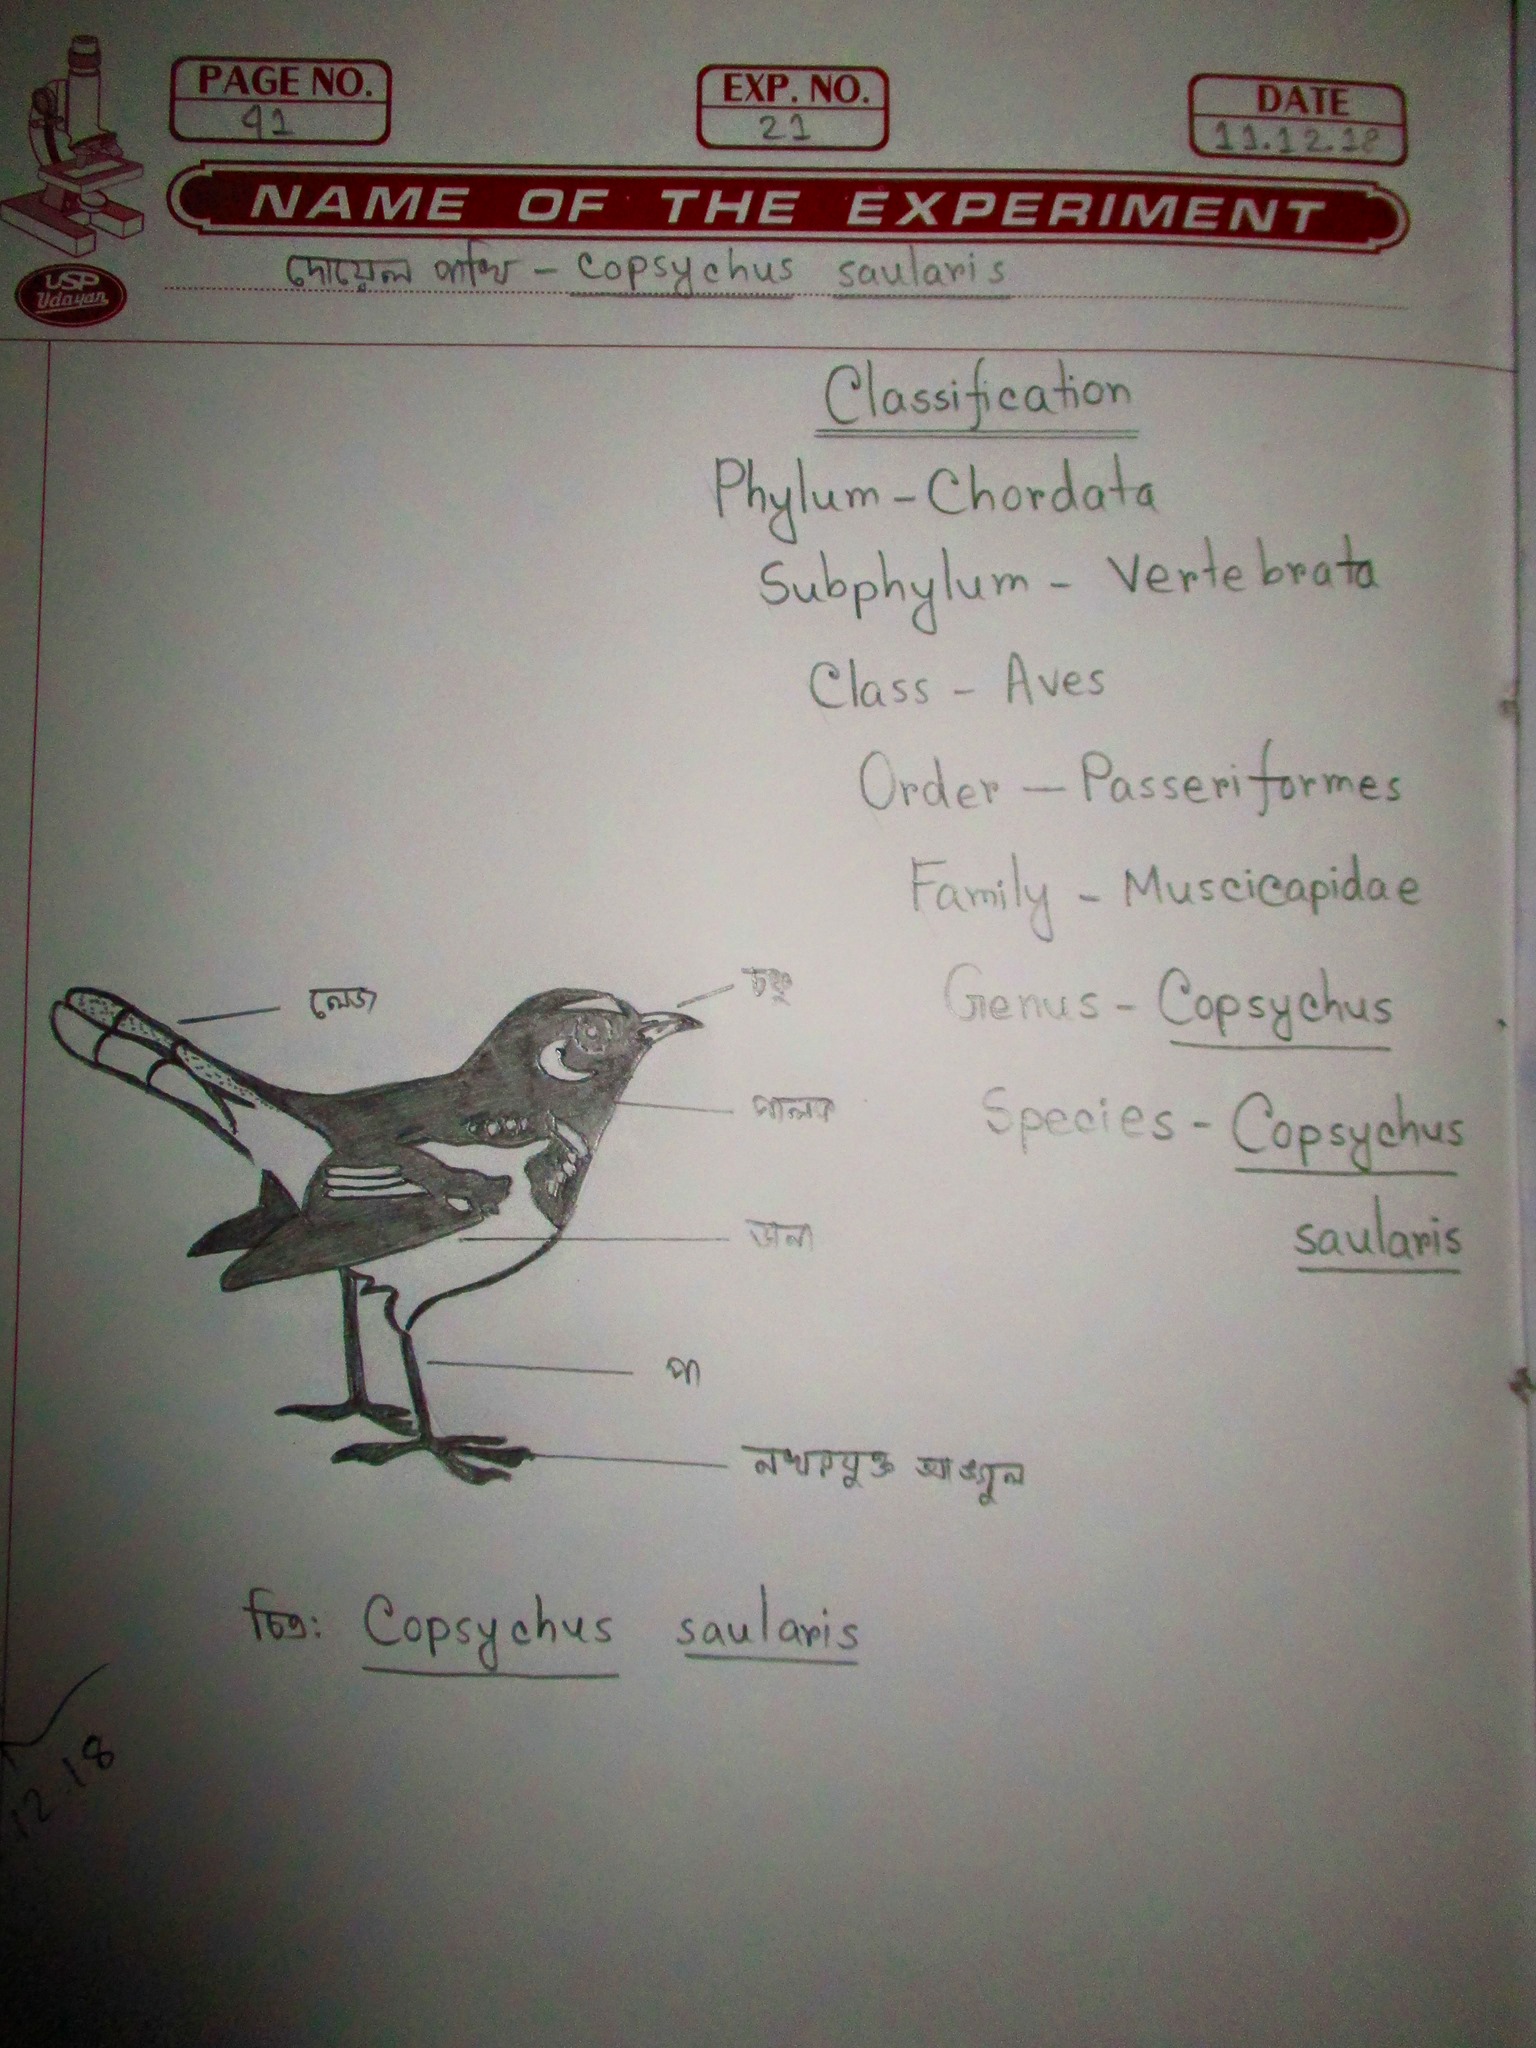 PAGE NO.
41
EXP. NO.
21
DATE
11.12.18
NAME OF THE EXPERIMENT
USP
Udayan
দোয়েল পাখি - Copsychus saularis
Classification
Phylum - Chordata
Subphylum - Vertebrata
Class - Aves
Order - Passeriformes
Family - Muscicapidae
Genus - Copsychus
Species - Copsychus
saularis
লেজ
চঞ্চু
পালক
ডানা
পা
নখরযুক্ত আঙ্গুল
চিত্র: Copsychus saularis
12.18